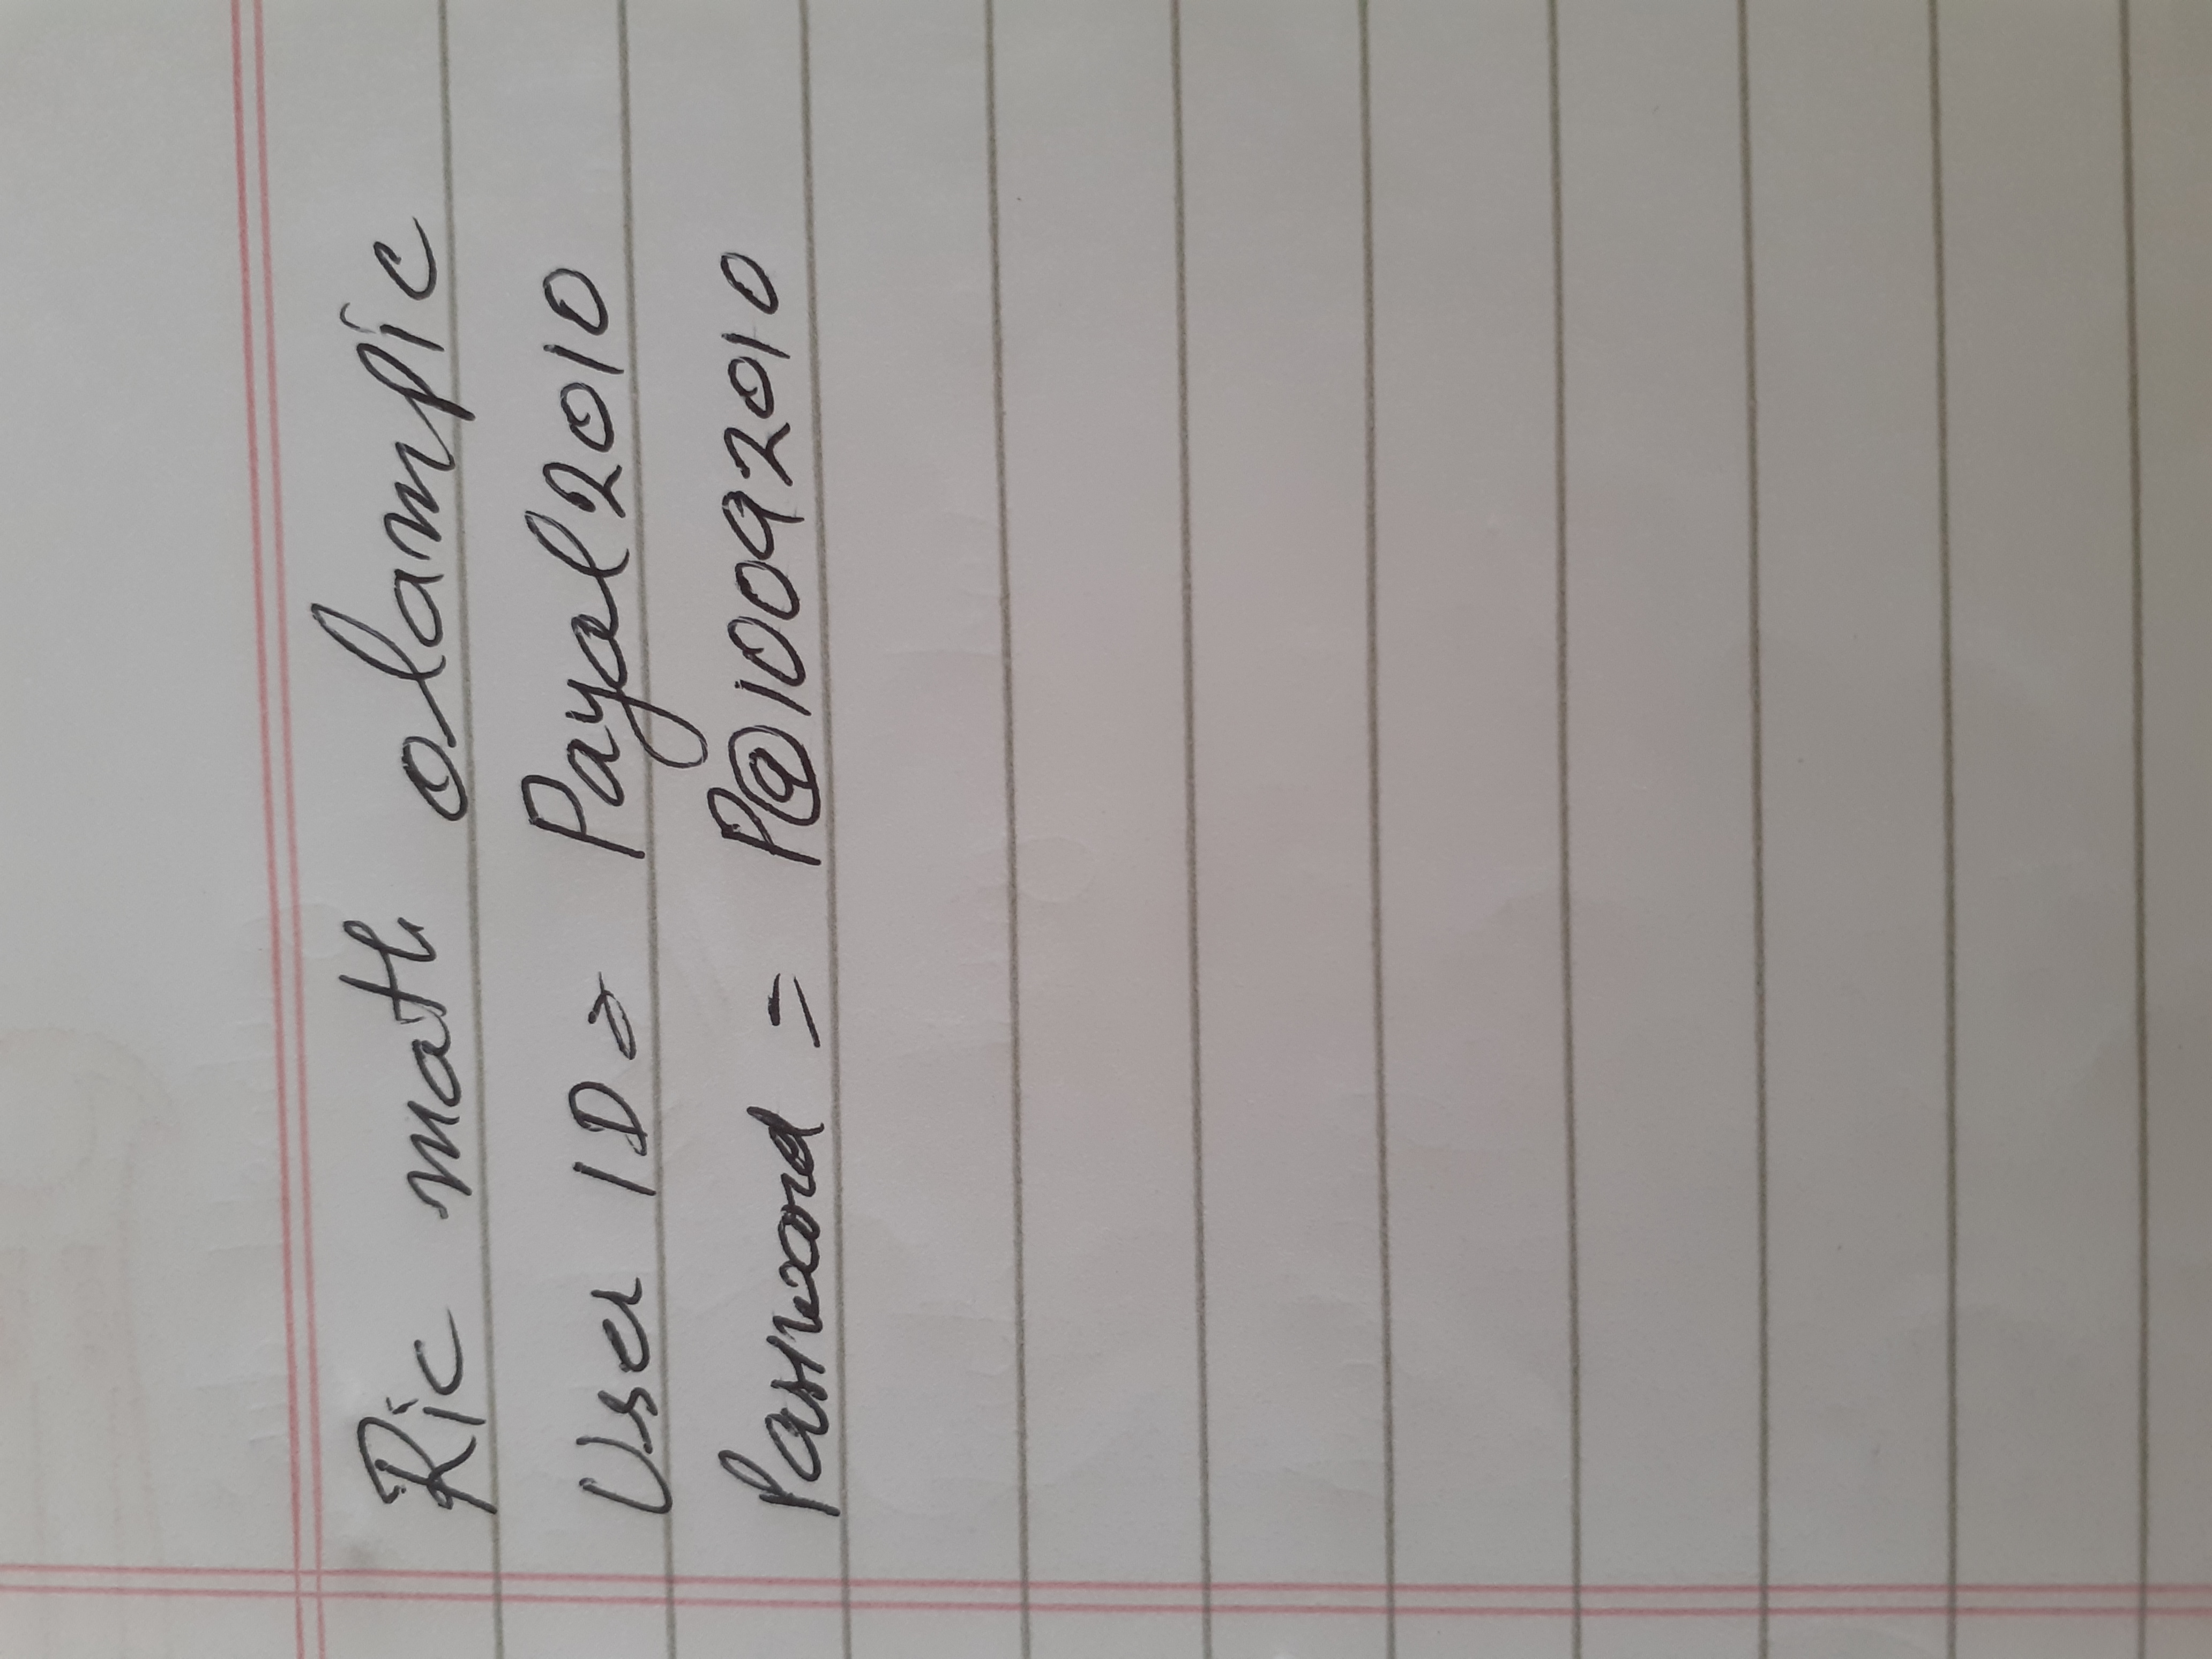 Ric math olampic
User ID = Payal2010
Password = P@10092010